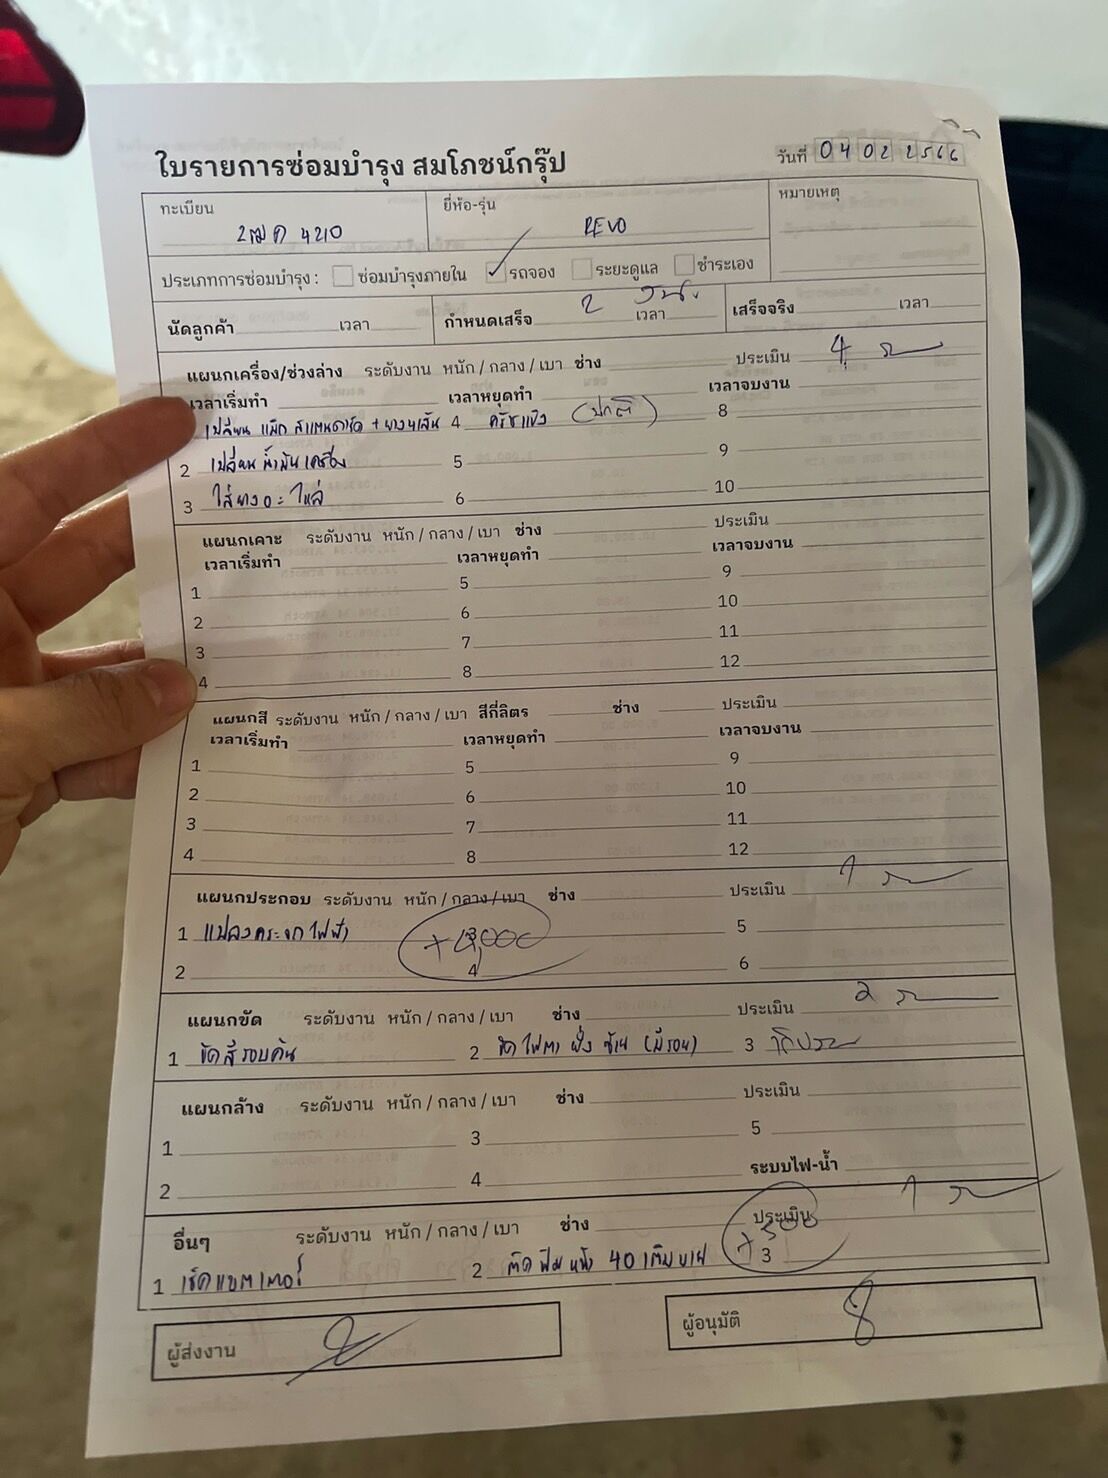 ใบรายการซ่อมบำรุง สมโภชน์กรุ๊ป
วันที่ 04 02 2566
ทะเบียน ยี่ห้อ-รุ่น หมายเหตุ
4210 REVO
ประเภทการซ่อมบำรุง : ซ่อมบำรุงภายใน ✓ รถจอง ระยะดูแล ชำระเอง
นัดลูกค้า เวลา กำหนดเสร็จ 2 วัน เวลา เสร็จจริง เวลา
แผนกเครื่อง/ช่วงล่าง ระดับงาน หนัก / กลาง / เบา ช่าง ประเมิน 4
เวลาเริ่มทำ เวลาหยุดทำ เวลาจบงาน
เปลี่ยน แม็ก สแตนดาร์ด + ยาง 4 เส้น 4 ครัชแข็ง (ปกติ) 8
2 เปลี่ยนน้ำมันเครื่อง 5 9
3 ใส่ยางอะไหล่ 6 10
แผนกเคาะ ระดับงาน หนัก / กลาง / เบา ช่าง ประเมิน
เวลาเริ่มทำ เวลาหยุดทำ เวลาจบงาน
1 5 9
2 6 10
3 7 11
4 8 12
แผนกสี ระดับงาน หนัก / กลาง / เบา สีกี่ลิตร ช่าง ประเมิน
เวลาเริ่มทำ เวลาหยุดทำ เวลาจบงาน
1 5 9
2 6 10
3 7 11
4 8 12
แผนกประกอบ ระดับงาน หนัก / กลาง / เบา ช่าง ประเมิน 1
1 แปลงกระจกไฟฟ้า 3 5
2 4 6
แผนกขัด ระดับงาน หนัก / กลาง / เบา ช่าง ประเมิน 2
1 ขัดสีรอบคัน 2 ขัดไฟตา ฝั่งซ้าย (มีรอย) 3
แผนกล้าง ระดับงาน หนัก / กลาง / เบา ช่าง ประเมิน
1 3 5
2 4 ระบบไฟ-น้ำ
อื่นๆ ระดับงาน หนัก / กลาง / เบา ช่าง ประเมิน 1
+500
1 เช็คแบตเตอรี่ 2 ติดฟิล์มหน้า 40 เต็มบาน 3
ผู้ส่งงาน ผู้อนุมัติ